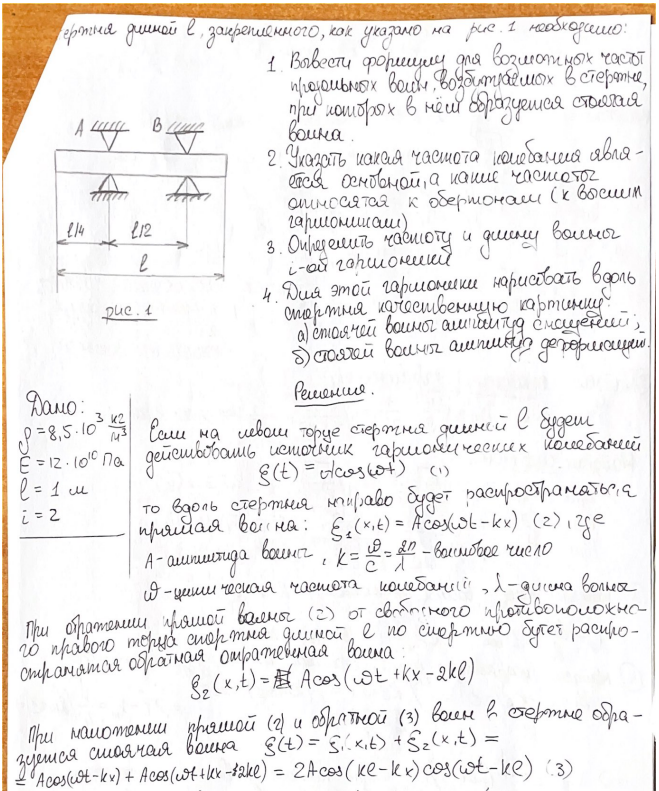 ержня длиной l, закрепленного, как указано на рис. 1 необходимо:
1. Вывести формулу для возможных частот
продольных волн, возбуждаемых в стержне,
при которых в нём образуется стоячая
волна.
2. Указать какая частота колебания явля-
ется основной, а какие частоты
относятся к обертонам (к высшим
гармоникам)
3. Определить частоту и длину волны
i-ой гармоники
4. Для этой гармоники нарисовать вдоль
стержня качественную картинку:
а) стоячей волны амплитуд смещений;
б) стоячей волны амплитуд деформаций.
A B
l/4 l/2
l
рис. 1
Решения.
Дано:
ρ = 8,5·10³ кг/м³
E = 12·10¹⁰ Па
l = 1 м
i = 2
Если на левом торце стержня длиной l будет
действовать источник гармонических колебаний
ξ(t) = Acos(ωt) (1)
то вдоль стержня направо будет распространяться
прямая волна: ξ₁(x,t) = Acos(ωt-kx) (2), где
A-амплитуда волны, k = ω/c = 2π/λ - волновое число
ω-циклическая частота колебаний, λ-длина волны
При отражении прямой волны (2) от свободного противоположно-
го правого торца стержня длиной l по стержню будет распро-
странятся обратная отраженная волна:
ξ₂(x,t) = Acos(ωt+kx-2kl)
При наложении прямой (2) и обратной (3) волн в стержне обра-
зуется стоячая волна ξ(t) = ξ₁(x,t) + ξ₂(x,t) =
= Acos(ωt-kx) + Acos(ωt+kx-2kl) = 2Acos(kl-kx)cos(ωt-kl) (3)